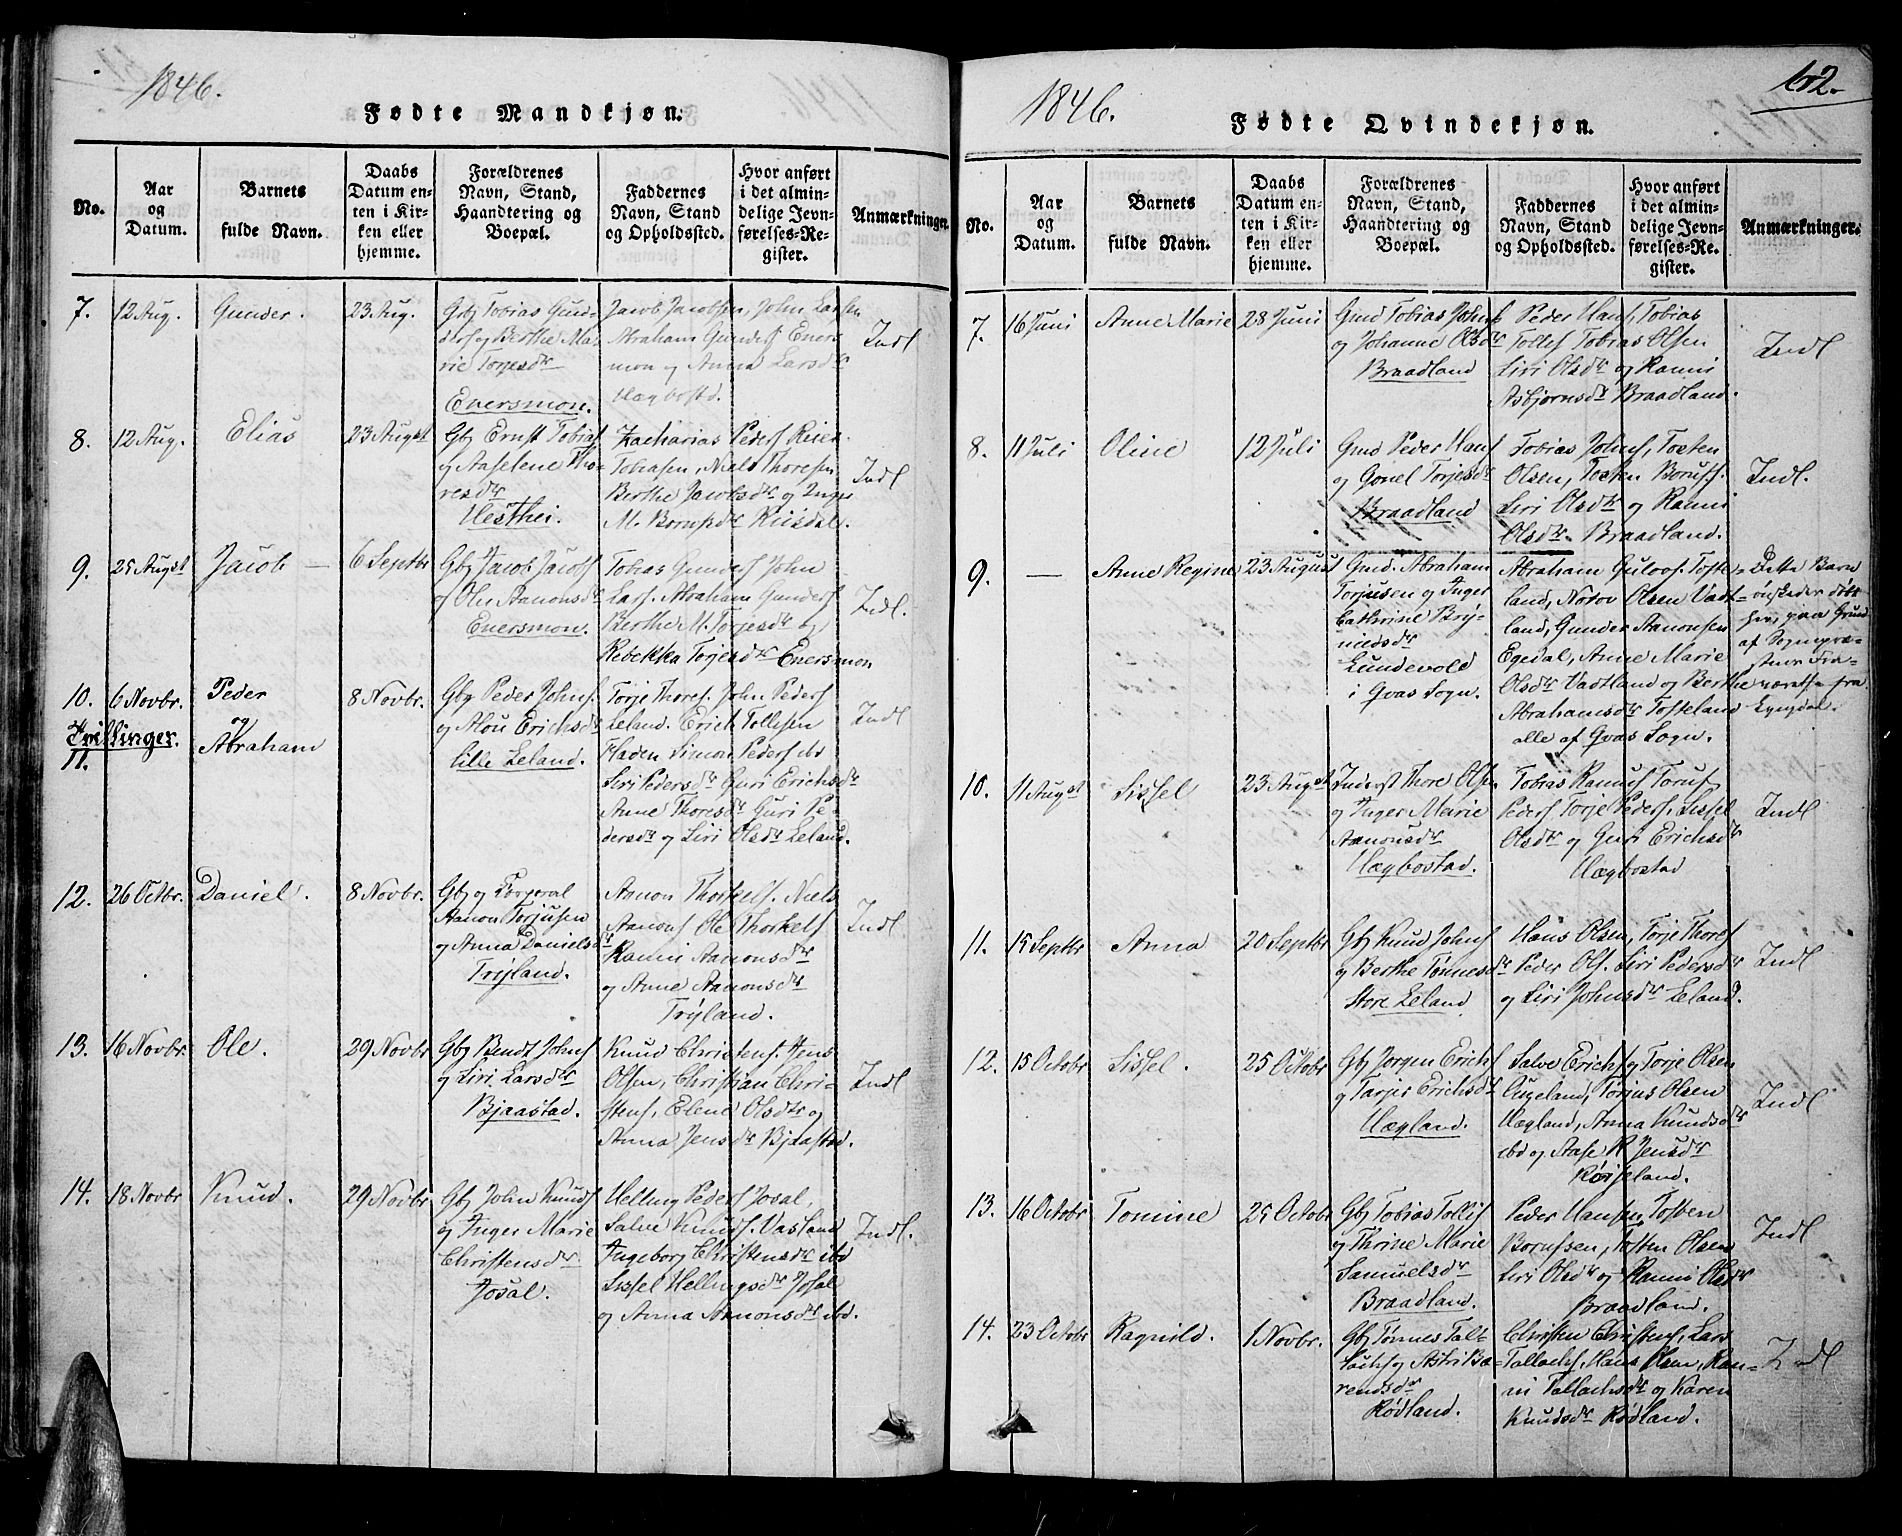 1846.
Fødte Mandkjøn.
No.
Aar
og
Datum.
Barnets
fulde Navn.
Daabs
Datum en-
ten i Kir-
ken eller
hjemme.
Forældrenes
Navn, Stand,
Haandtering og
Boepæl.
Faddernes
Navn, Stand
og Opholdssted.
Hvor anført
i det almin-
delige Jevn-
førelses-Re-
gister.
Anmærkninger.
7. 12 Aug. Gunder. 23 Aug.
Gbj Tobias Gun-
ders og Berthe Ma-
rie Torjesdr
Enersmon.
Jacob Jacobsen, John Larsen
Abraham Gunders Eners-
mon og Anna Larsdr
Hægbostd.
Indl
8. 12 Aug. Elias 23 Augst
Gbj Ernst Tobias
og Aaselene Tho-
resdr
Hesthei.
Zacharias Peders Reier
Tobiasen, Niels Thoresen
Berthe Jacobsdr og Inger
M. Bornpsdr Kiisdal.
Indl
9. 25 Augst Jacob — 6 Septbr
Gbj Jacob Jacobs
og Olu Aanonsdr
Enersmon.
Tobias Gunders John
Lars. Abraham Gunders
Berthe M. Torjesdr og
Rebekka Torjesdr Enersmon
Indl.
10. 6 Novbr. Peder 8 Novbr.
Tvillinger. og
11. Abraham
Gbj Peder Johns.
og Alou Erichsdr
lille Leland.
Torje Thores. John Peders
Leland. Erich Tollesen
Haden Simon Peders ibd
Siri Pedersdr Guri Erichsdr
Anne Thoresdr Guri Pe-
dersdr og Siri Olsdr Leland.
Indl
12. 26 Octbr. Daniel. 8 Novbr.
Gbj og
Aanon Torjusen
og Anna Danielsdr
Trÿland.
Aanon Thorkels. Niels
Aanons Ole Thorkels
Ramin Aanonsdr
og Anne Aanonsdr
Trÿland.
Indl
13. 16 Novbr. Ole. 29 Novbr
Gbj Bendt Johns
og Siri Larsdr
Bjaastad.
Knud Christens. Jens
Olsen, Christian Chri-
stens, Elene Olsdtr og
Anna Jensdr Bjaastad.
Indl
14. 18 Novbr Knud. 29 Novbr
Gbj John Knuds
og Inger Marie
Christensdr
Josal.
Helling Peders Josal,
Salve Knuds. Vasland
Ingeborg Christensdr ibd
Sissel Hellingsdr Josal
og Anna Aanonsdr ibd.
Indl.
1846.
62.
Fødte Qvindekjøn.
No.
Aar
og
Datum.
Barnets
fulde Navn.
Daabs
Datum en-
ten i Kir-
ken eller
hjemme.
Forældrenes
Navn, Stand,
Haandtering og
Boepæl.
Faddernes
Navn, Stand
og Opholdssted.
Hvor anført
i det almin-
delige Jevn-
førelses-Re-
gister.
Anmærkninger.
7. 16 Juni Anne Marie 28 Juni
Gmd Tobias Johns
og Johanne Olsdr
Braadland
Peder Hans, Tobias
Tolles Tobias Olsen
Siri Olsdr og Ranni
Asbjørnsdr Braadland.
Indl
8. 11 Juli Oline 12 Juli
Gmd Peder Hans
og Gonel Torjesdr
Braadland
Tobias Johns, Tosten
Olsen, Tosten Boruss.
Siri Olsdtr og Ranni
Olsdtr. Braadland.
Indl.
9. — Anne Regine 23 August
Gmd. Abraham
Torjusen og Inger
Cathrine Brÿ-
nildsdr
Lundevold
i Qvas Sogn.
Abraham Gulovs. Tofte-
land, Notov Olsen Vadt-
land, Gunder Aanonsen
Egedal, Anne Marie
Olsdr Vadtland og Berthe
Abrahamsdr Tofteland
alle af Qvas Sogn.
Dette Barn
ønskedes døbt
her, paa Grund
af Sognepræ-
stens Fra-
værelse fra
Lyngdal.
10. 11 Augst Sissel 23 Augst
Inderst Thore Olsen
og Inger Marie
Aanonsdr
Hægbostad.
Tobias Ramus Torus
Peders Torje Peders, Sissel
Olsdtr og Guri Erichsdr
Hægbostad
Indl
11. 15 Septbr Anna 20 Septbr
Gbj Knud Johns
og Berthe Tønnesdr
Store Leland
Hans Olsen, Torje Thores
Peder Ols. Siri Pedersdr
og Siri Johnsdr Leland.
Indl
12. 15 Octobr Sissel. 25 Octobr
Gbj Jørgen Erichs
og Tarjer Erichsdr
Hægland.
Salve Erichs og Torje Olsen
Augeland, Torjus Olsen
Hægland, Anna Knudsdr
ibd og Aase R Jensdr
Røiseland.
Indl
13. 16 Octobr Tomine 25 Octobr
Gbj Tobias Tollis
og Thrine Marie
Samuelsdr
Braadland.
Peder Hansen, Tosten
Borussen, Tosten Olsen
Siri Olsdr og Ranni Olsdr
Braadland.
Indl
14. 23 Octobr Ragnild. 1 Novbr.
Gbj Tønnes Tal-
lachs og Astri Be-
rendsdr
Rødland.
Christen Christens, Lars
Tallachs, Hans Olsen, Ran-
ni Tallachsdr og Karen
Knudsdr Rødland.
Indl